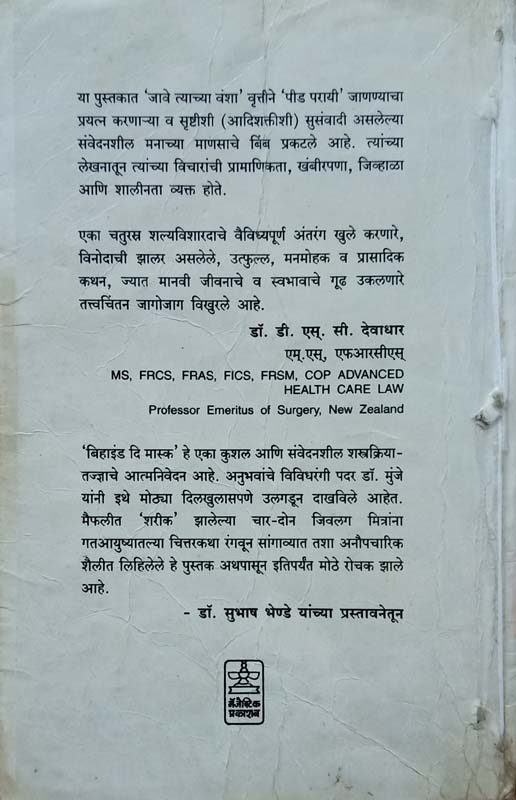 या पुस्तकात ‘जावे त्याच्या वंशा’ वृत्तीने ‘पीड परायी’ जाणण्याचा
प्रयत्न करणाऱ्या व सृष्टीशी (आदिशक्तीशी) सुसंवादी असलेल्या
संवेदनशील मनाच्या माणसाचे बिंब प्रकटले आहे. त्यांच्या
लेखनातून त्यांच्या विचारांची प्रामाणिकता, खंबीरपणा, जिव्हाळा
आणि शालीनता व्यक्त होते.
एका चतुरस्र शल्यविशारदाचे वैविध्यपूर्ण अंतरंग खुले करणारे,
विनोदाची झालर असलेले, उत्फुल्ल, मनमोहक व प्रासादिक
कथन, ज्यात मानवी जीवनाचे व स्वभावाचे गूढ उकलणारे
तत्त्वचिंतन जागोजाग विखुरले आहे.
डॉ. डी. एस्. सी. देवाधार
एम्.एस्, एफआरसीएस्
MS, FRCS, FRAS, FICS, FRSM, COP ADVANCED
HEALTH CARE LAW
Professor Emeritus of Surgery, New Zealand
‘बिहाइंड दि मास्क’ हे एका कुशल आणि संवेदनशील शस्त्रक्रिया-
तज्ज्ञाचे आत्मनिवेदन आहे. अनुभवांचे विविधरंगी पदर डॉ. मुंजे
यांनी इथे मोठ्या दिलखुलासपणे उलगडून दाखविले आहेत.
मैफलीत ‘शरीक’ झालेल्या चार-दोन जिवलग मित्रांना
गतआयुष्यातल्या चित्तरकथा रंगवून सांगाव्यात तशा अनौपचारिक
शैलीत लिहिलेले हे पुस्तक अथपासून इतिपर्यंत मोठे रोचक झाले
आहे.
- डॉ. सुभाष भेण्डे यांच्या प्रस्तावनेतून
मॅजेस्टिक
प्रकाशन